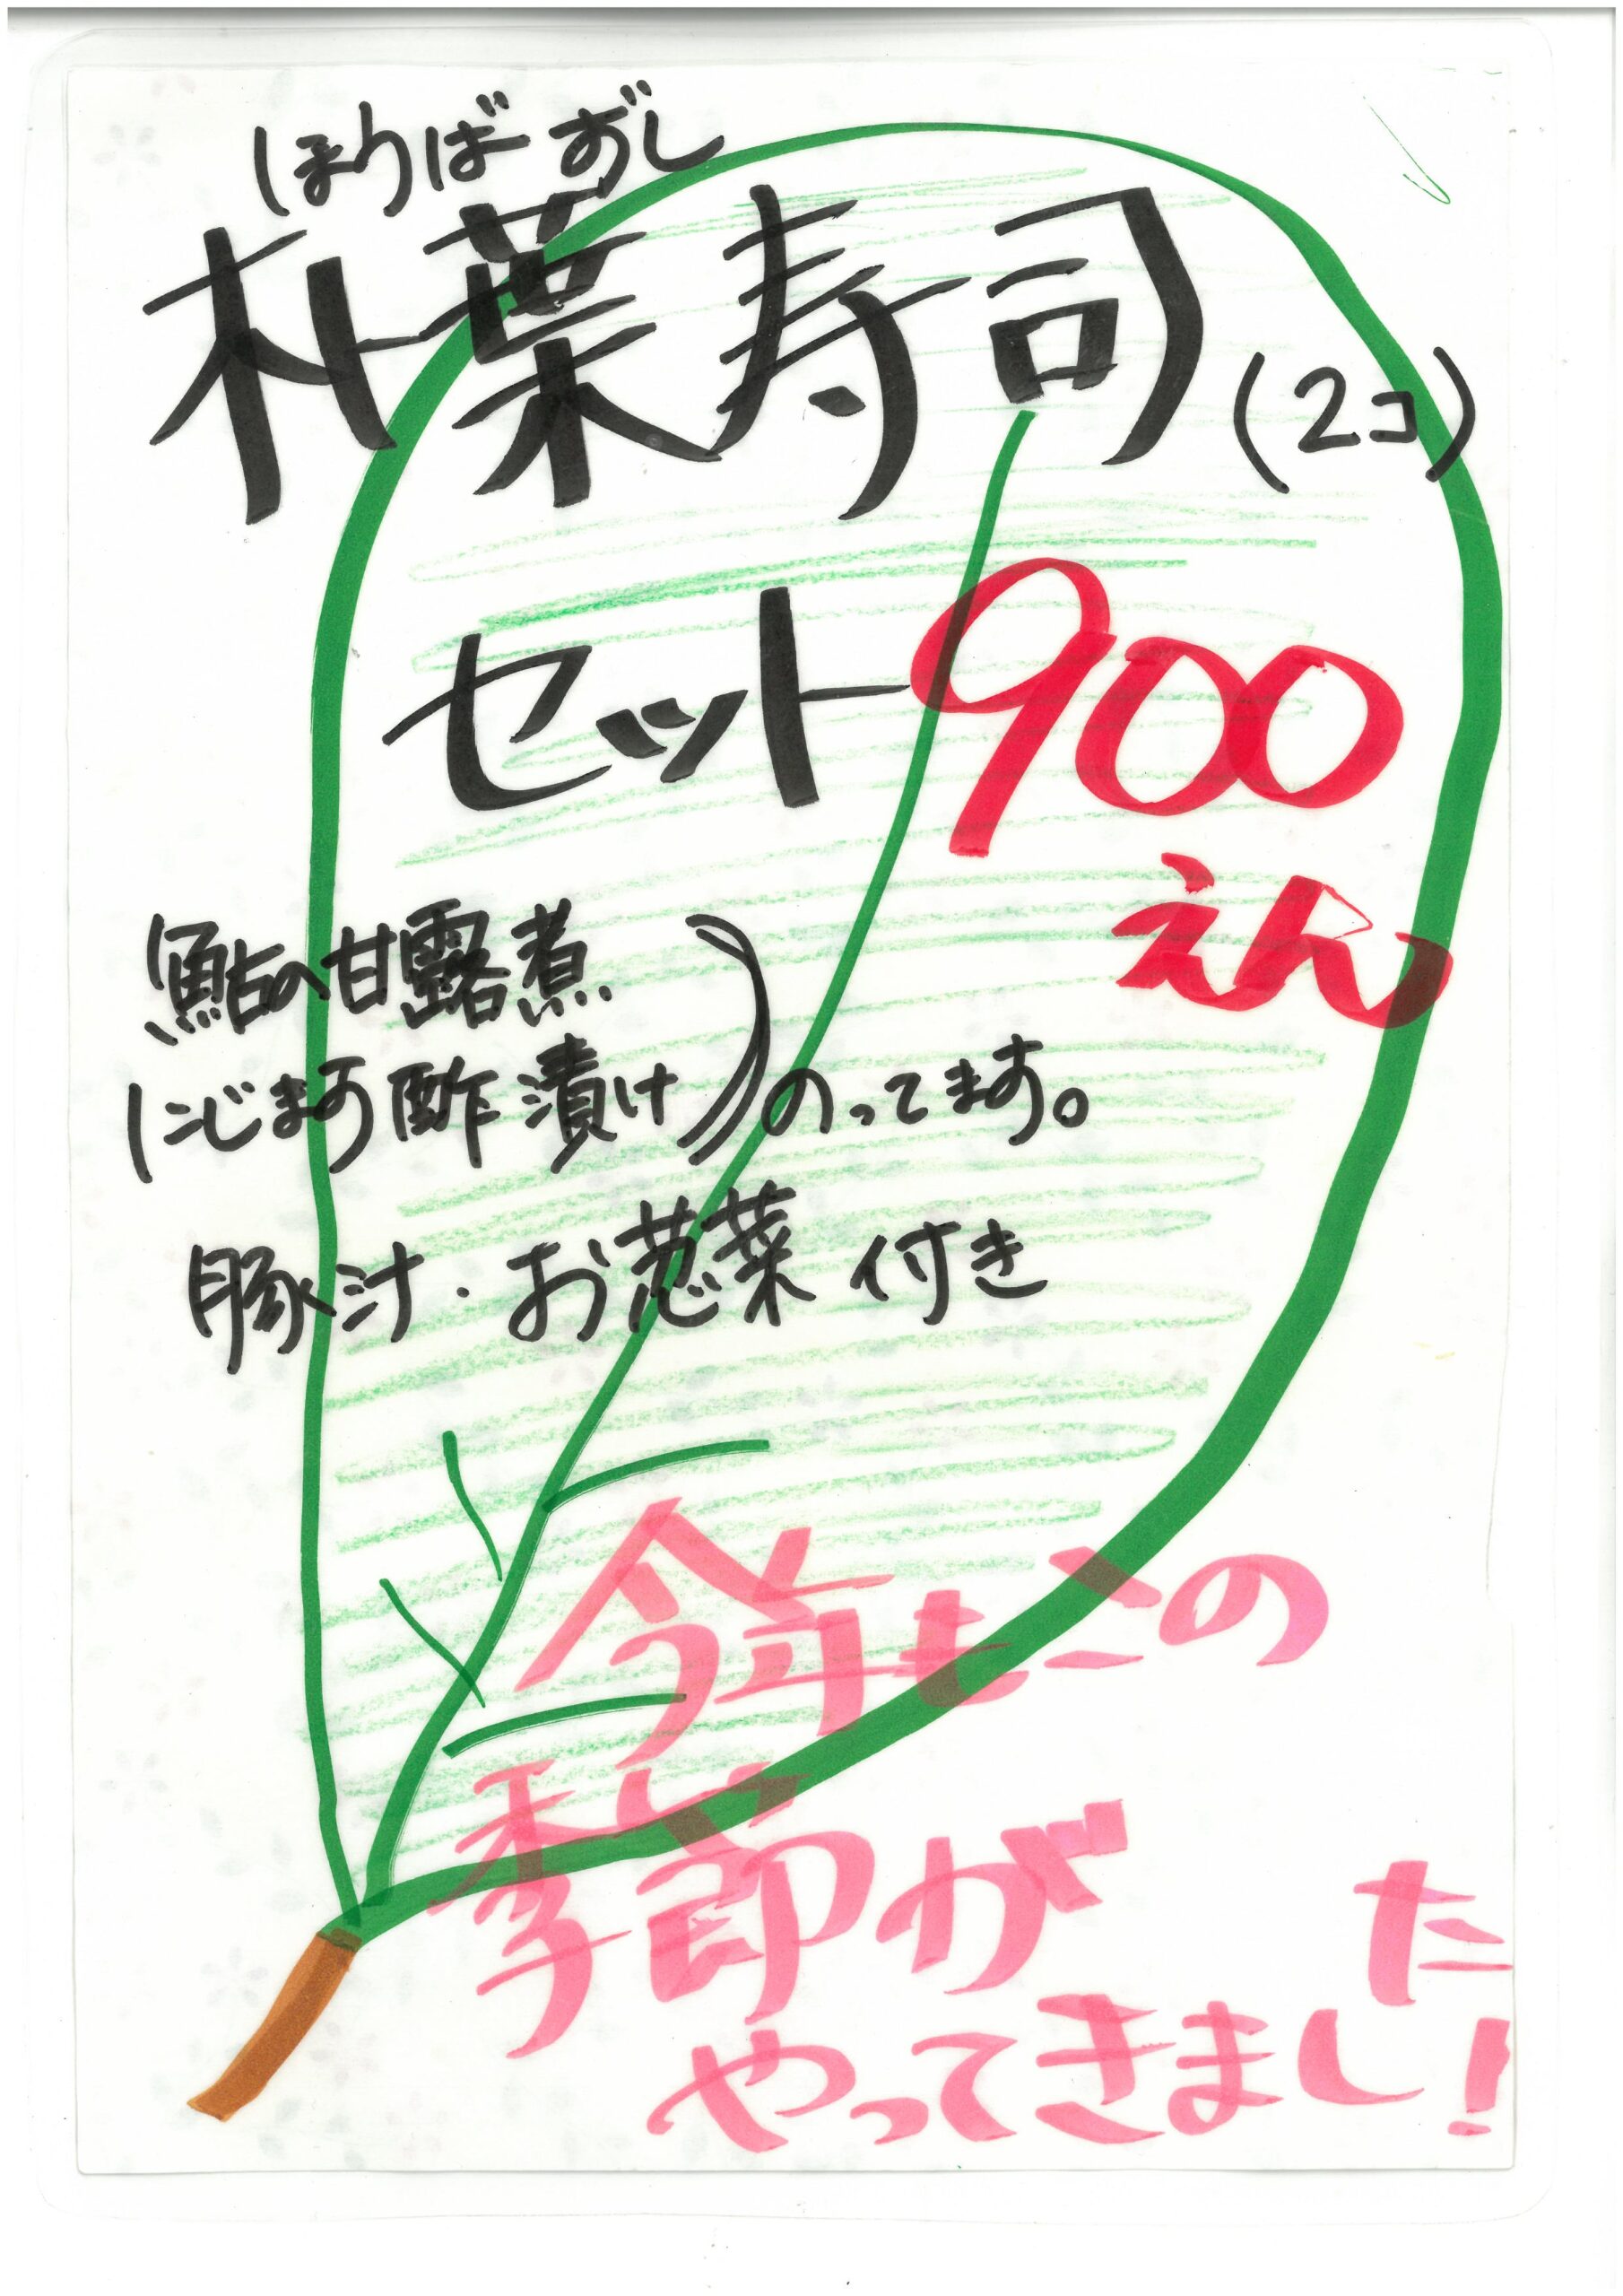 ほうばずし
朴葉寿司(2コ)
セット900
えん
鮎の甘露煮
にじます酢漬け のってます。
豚汁・お惣菜付き
今年もこの
季節が
やってきました!